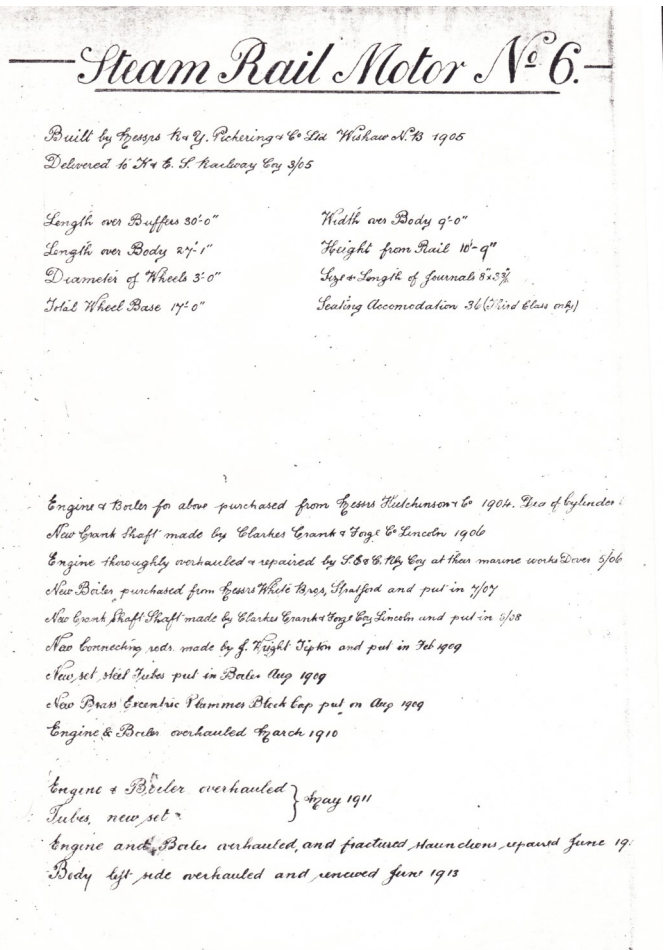 Steam Rail Motor No 6.
Built by Messrs R & Y. Pickering & Co Ltd Wishaw N.B 1905
Delivered to K & E. S. Railway Coy 3/05
Length over Buffers 30'-0"
Width over Body 9'-0"
Length over Body 27'-1"
Height from Rail 10'-9"
Diameter of Wheels 3'-0"
Size & Length of Journals 8"x3
Total Wheel Base 17'-0"
Seating Accomodation 36 (Third Class only)
Engine & Boiler for above purchased from Messrs Hutchinson & Co 1904. Dia of Cylinder
New Crank Shaft made by Clarkes Crank & Forge Co Lincoln 1906
Engine thoroughly overhauled & repaired by S.E & C. Rly Coy at their marine works Dover 5/06
New Boiler purchased from Messrs White Bros, Stratford and put in 7/07
New Crank Shaft Shaft made by Clarkes Crank & Forge Coy Lincoln and put in 5/08
New Connecting rods made by J. Wright Tipton and put in Feb 1909
New set steel Tubes put in Boiler Aug 1909
New Brass Excentric Block Cap put on Aug 1909
Engine & Boiler overhauled March 1910
Engine & Boiler overhauled } May 1911
Tubes, new set
Engine and Boiler overhauled, and fractured staunchions repaired June 19
Body left side overhauled and renewed June 1913